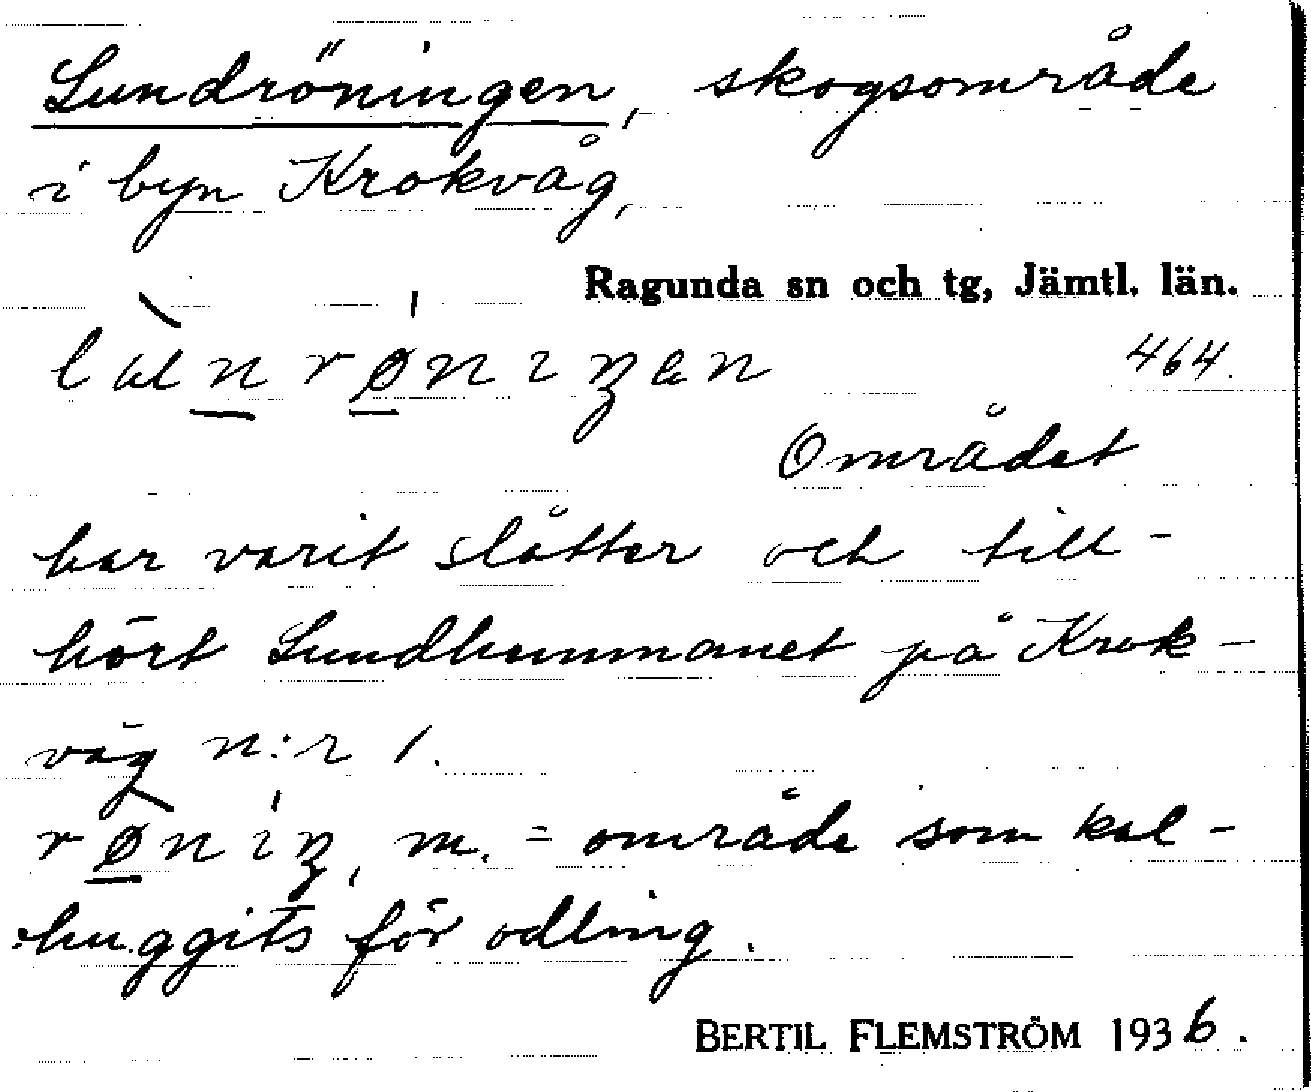 Lundröningen, skogsområde
i byn Krokvåg,
Ragunda sn och tg, Jämtl. län.
464.
Området
har varit slåtter och till-
hört Lundhemmanet på Krok-
våg n:r 1.
m. = område som kal-
huggits för odling.
BERTIL FLEMSTRÖM 1936.